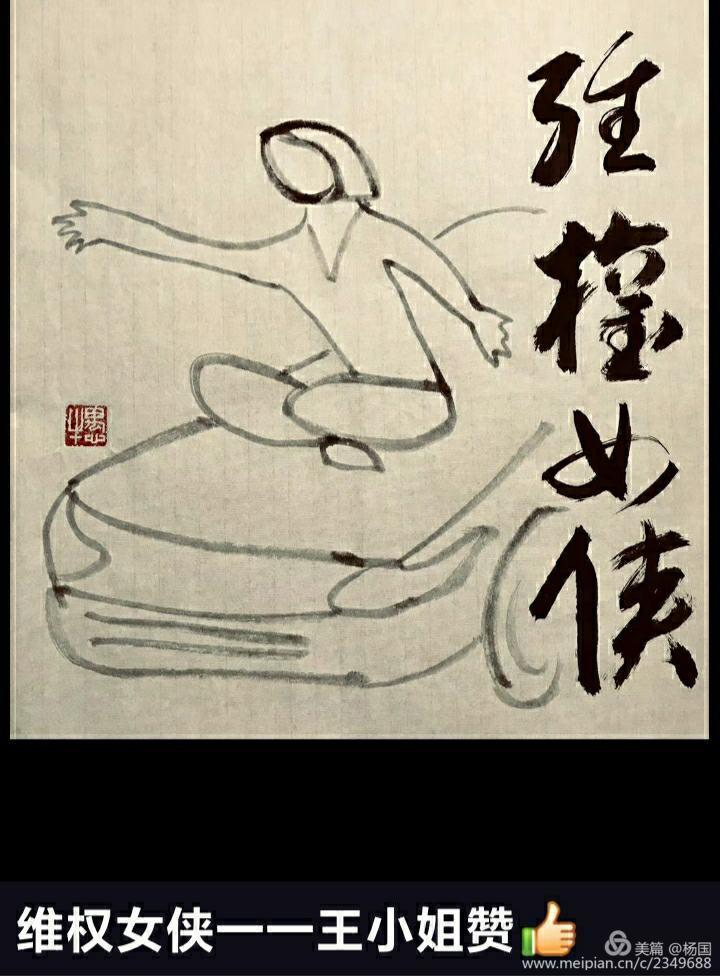 维權女侠
维权女侠一一王小姐赞👍
美篇 @杨国
www.meipian.cn/c/2349688